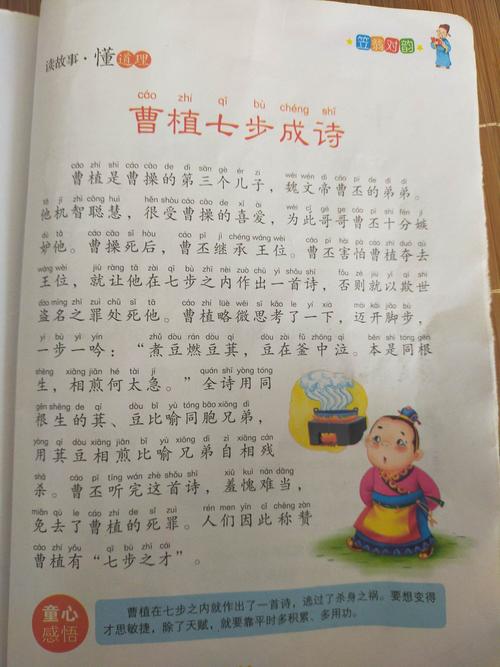 读故事·懂道理
笠翁对韵
cáo zhí qī bù chéng shī
曹植七步成诗
cáo zhí shì cáo cāo de dì sān gè ér zi wèi wén dì cáo pī de dì di
曹植是曹操的第三个儿子，魏文帝曹丕的弟弟。
tā jī zhì cōng huì hěn shòu cáo cāo de xǐ ài wèi cǐ gē ge cáo pī shí fēn jí
他机智聪慧，很受曹操的喜爱，为此哥哥曹丕十分嫉
dù tā cáo cāo sǐ hòu cáo pī jì chéng wáng wèi cáo pī hài pà cáo zhí duó qù
妒他。曹操死后，曹丕继承王位。曹丕害怕曹植夺去
wáng wèi jiù ràng tā zài qī bù zhī nèi zuò chū yì shǒu shī fǒu zé jiù yǐ qī shì
王位，就让他在七步之内作出一首诗，否则就以欺世
dào míng zhī zuì chǔ sǐ tā cáo zhí lüè wēi sī kǎo le yí xià mài kāi jiǎo bù
盗名之罪处死他。曹植略微思考了一下，迈开脚步，
yí bù yì yín zhǔ dòu rán dòu qí dòu zài fǔ zhōng qì běn shì tóng gēn
一步一吟：“煮豆燃豆萁，豆在釜中泣。本是同根
shēng xiāng jiān hé tài jí quán shī yòng tóng
生，相煎何太急。”全诗用同
gēn shēng de qí dòu bǐ yù tóng bāo xiōng dì
根生的萁、豆比喻同胞兄弟，
yòng qí dòu xiāng jiān bǐ yù xiōng dì zì xiāng cán
用萁豆相煎比喻兄弟自相残
shā cáo pī tīng wán zhè shǒu shī xiū kuì nán dāng
杀。曹丕听完这首诗，羞愧难当，
miǎn qù le cáo zhí de sǐ zuì rén men yīn cǐ chēng zàn
免去了曹植的死罪。人们因此称赞
cáo zhí yǒu qī bù zhī cái
曹植有“七步之才”。
童心
感悟
曹植在七步之内就作出了一首诗，逃过了杀身之祸。要想变得
才思敏捷，除了天赋，就要靠平时多积累、多用功。